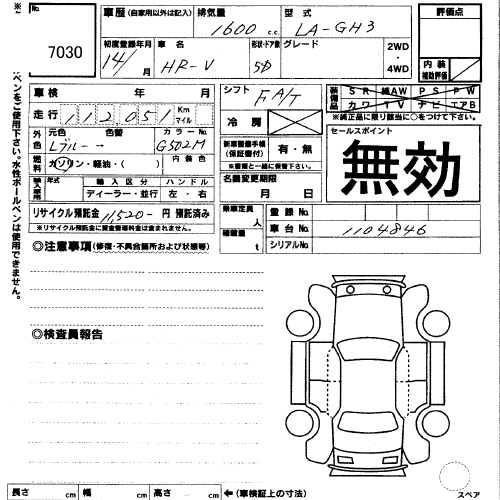 ※ペンをご使用下さい。水性ボールペンは使用できません。
No.
7030
車歴(自家用以外は記入)
排気量
1600 c.c.
型式
LA-GH3
初度登録年月
14/ 月
車名
HR-V
形状・ドア数
5D
グレード
2WD
・
4WD
評価点
内装
補助評価
車検 年 月
シフト
FA/T
装備品
SR 純AW PS PW
カワ TV ナビ エアB
※純正品に限り該当に○をつけて下さい。
走行 112051 Km マイル
冷房
外色
元色 色替
Lブルー→
カラーNo.
G502M
燃料
ガソリン・軽油・( )
内装色
新車整備手帳
(保証書付)
有・無
※書類と一緒に後送
セールスポイント
無効
輸入車用
年式
輸入区分
ディーラー・並行
ハンドル
左・右
名義変更期限
月 日
リサイクル預託金 11520- 円 預託済み
※リサイクル預託金に資金管理料金は含まれません。
乗車定員 人
積載量 t
登録No.
車台No. 1104846
シリアルNo.
◎注意事項(修復・不具合箇所および状態等)
◎検査員報告
長さ cm 幅 cm 高さ cm ←(車検証上の寸法)
スペア